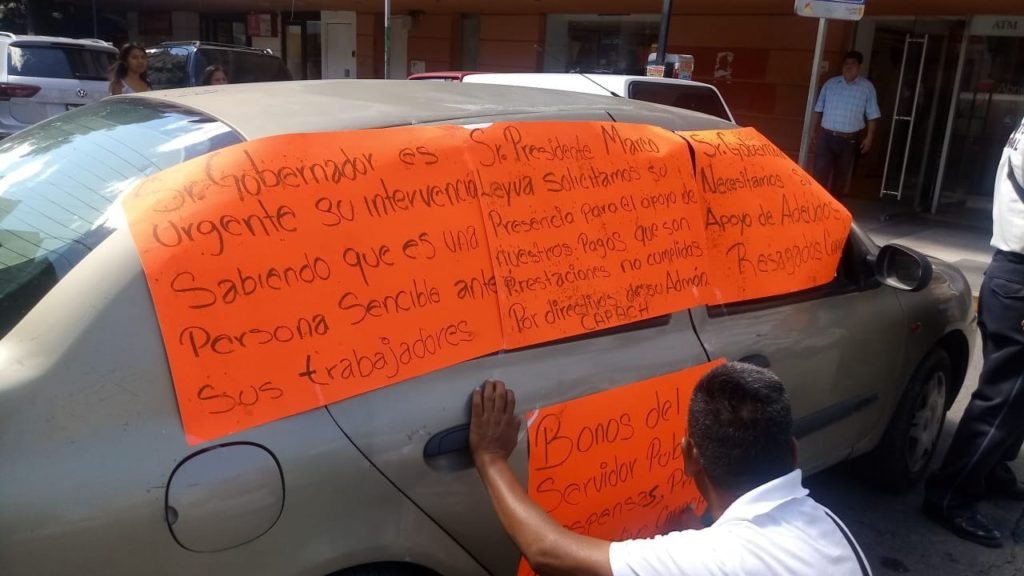 Sr. Gobernador es
urgente su intervenció
Sabiendo que es una
Persona Sencible ante
sus trabajadores
Sr. Presidente Marco
Leyva solicitamos su
Presencia para el apoyo de
nuestros. Pagos que son
Prestaciones no cumplidas
Por directivos de su Admón.
CAPACH
Sr. Gobern
Necesitamos su
Apoyo de Adeudos
Resagados
Bonos del
Servidor Pub
spensas,
ATM